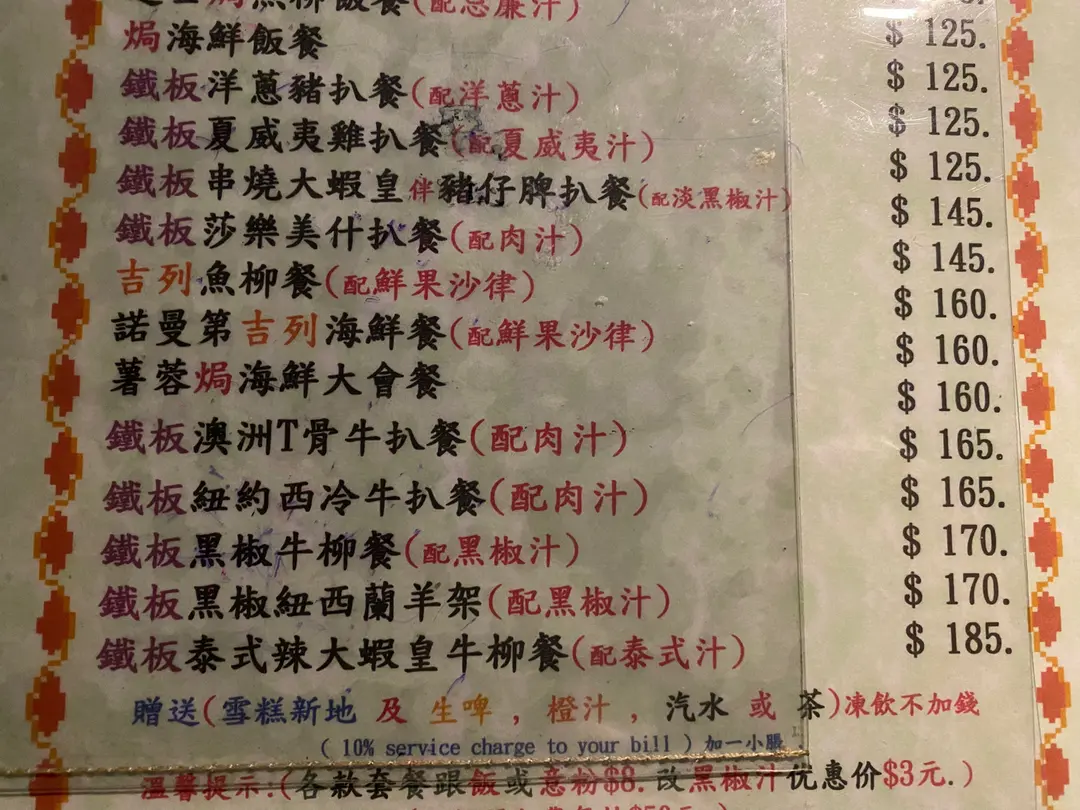 飯餐(配忌廉汁) $ 125.
焗海鮮飯餐 $ 125.
鐵板洋蔥豬扒餐(配洋蔥汁) $ 125.
鐵板夏威夷雞扒餐(配夏威夷汁) $ 125.
鐵板串燒大蝦皇伴豬仔脾扒餐(配淡黑椒汁) $ 145.
鐵板莎樂美什扒餐(配肉汁) $ 145.
吉列魚柳餐(配鮮果沙律) $ 160.
諾曼第吉列海鮮餐(配鮮果沙律) $ 160.
薯蓉焗海鮮大會餐 $ 160.
鐵板澳洲T骨牛扒餐(配肉汁) $ 165.
鐵板紐約西冷牛扒餐(配肉汁) $ 165.
鐵板黑椒牛柳餐(配黑椒汁) $ 170.
鐵板黑椒紐西蘭羊架(配黑椒汁) $ 170.
鐵板泰式辣大蝦皇牛柳餐(配泰式汁) $ 185.
贈送(雪糕新地 及 生啤 , 橙汁 , 汽水 或 茶)凍飲不加錢
( 10% service charge to your bill ) 加一小賬
溫馨提示:(各款套餐跟飯或意粉$8. 改黑椒汁优惠价$3元.)